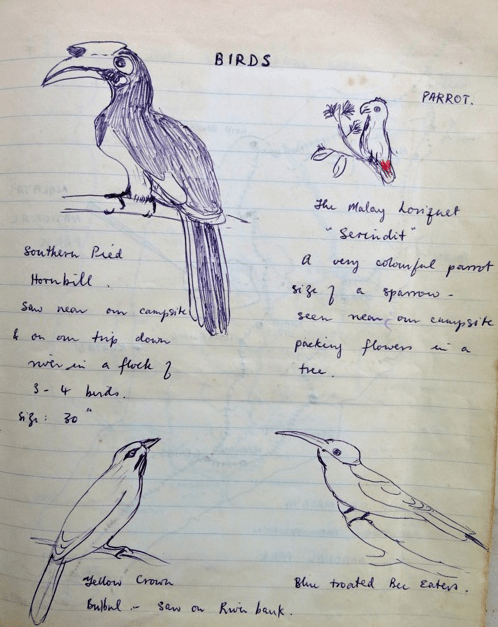 BIRDS
PARROT.
Southern Pied
Hornbill.
Saw near our campsite
& on our trip down
river in a flock of
3-4 birds.
size: 30"
The Malay Loriquet
"Serindit"
A very colourful parrot
size of a sparrow -
seen near our campsite
packing flowers in a
tree.
Yellow Crown
Bulbul - Saw on River bank.
Blue troated Bee Eaters.